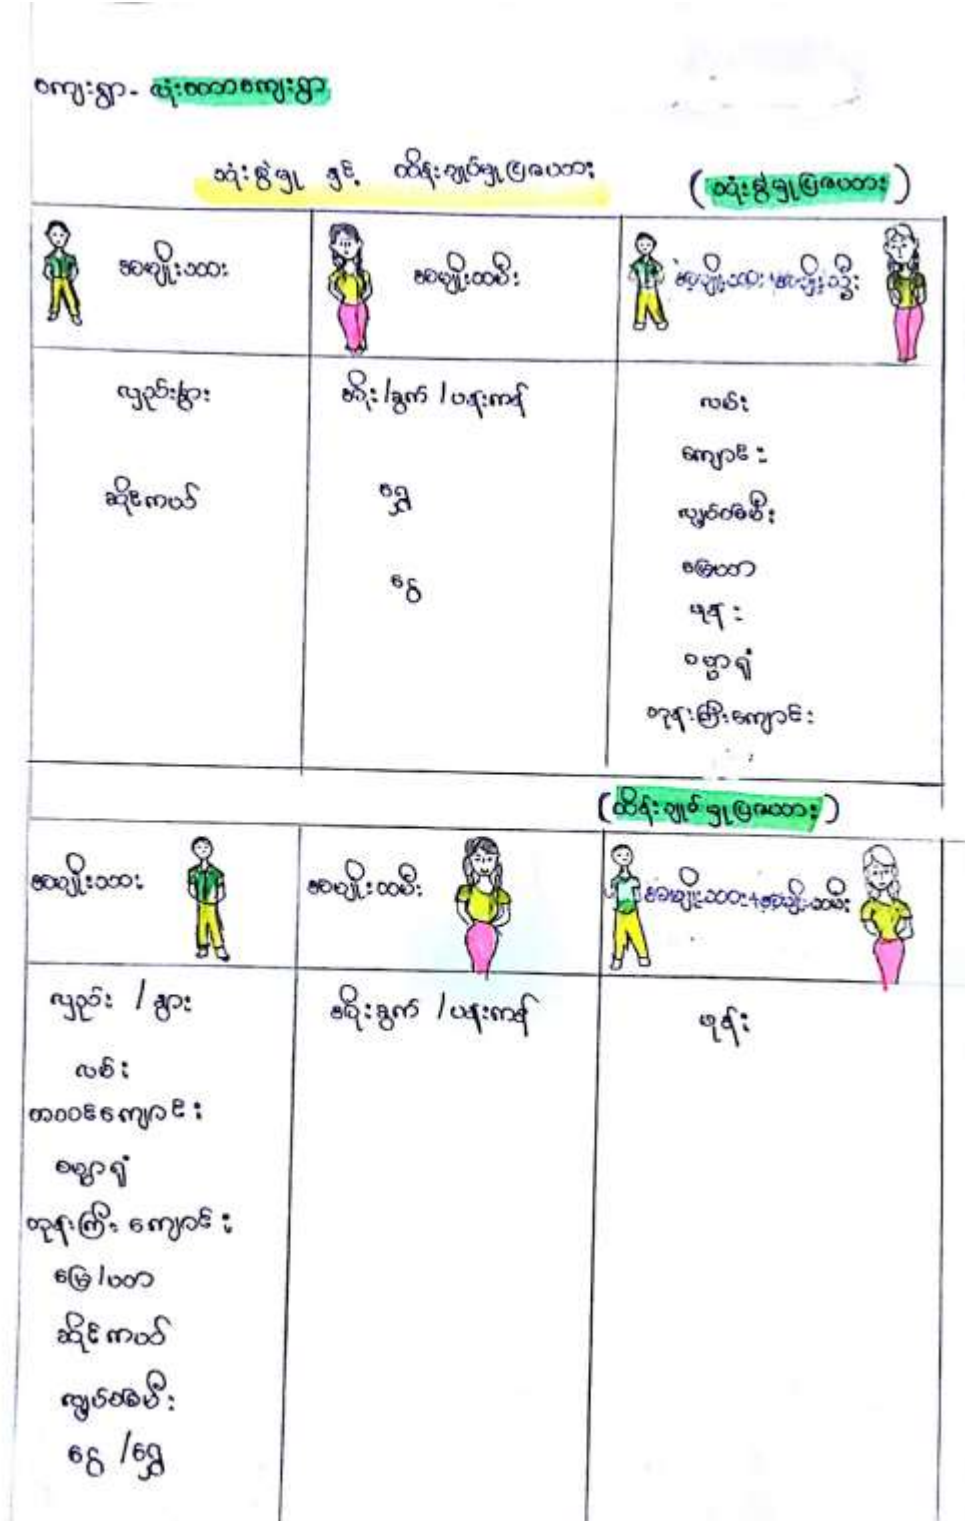 ကျေးရွာ - လုံးတောကျေးရွာ
သုံးစွဲမှု နှင့် ထိန်းချုပ်မှုပြဇယား (သုံးစွဲမှုပြဇယား)
အမျိုးသား အမျိုးသမီး အမျိုးသား+အမျိုးသမီး
လှည်း/နွား အိုး/ခွက် /ပန်းကန် လမ်း
ကျောင်း
ဆိုင်ကယ် ရွှေ လျှပ်စစ်မီး
မြေယာ
ငွေ ဖုန်း
ဓမ္မာရုံ
ဘုန်းကြီးကျောင်း
(ထိန်းချုပ်မှုပြဇယား)
အမျိုးသား အမျိုးသမီး အမျိုးသား+အမျိုးသမီး
လှည်း / နွား အိုးခွက် /ပန်းကန် ဖုန်း
လမ်း
စာသင်ကျောင်း
ဓမ္မာရုံ
ဘုန်းကြီး ကျောင်း
မြေ/ယာ
ဆိုင်ကယ်
လျှပ်စစ်မီး
ငွေ /ရွှေ